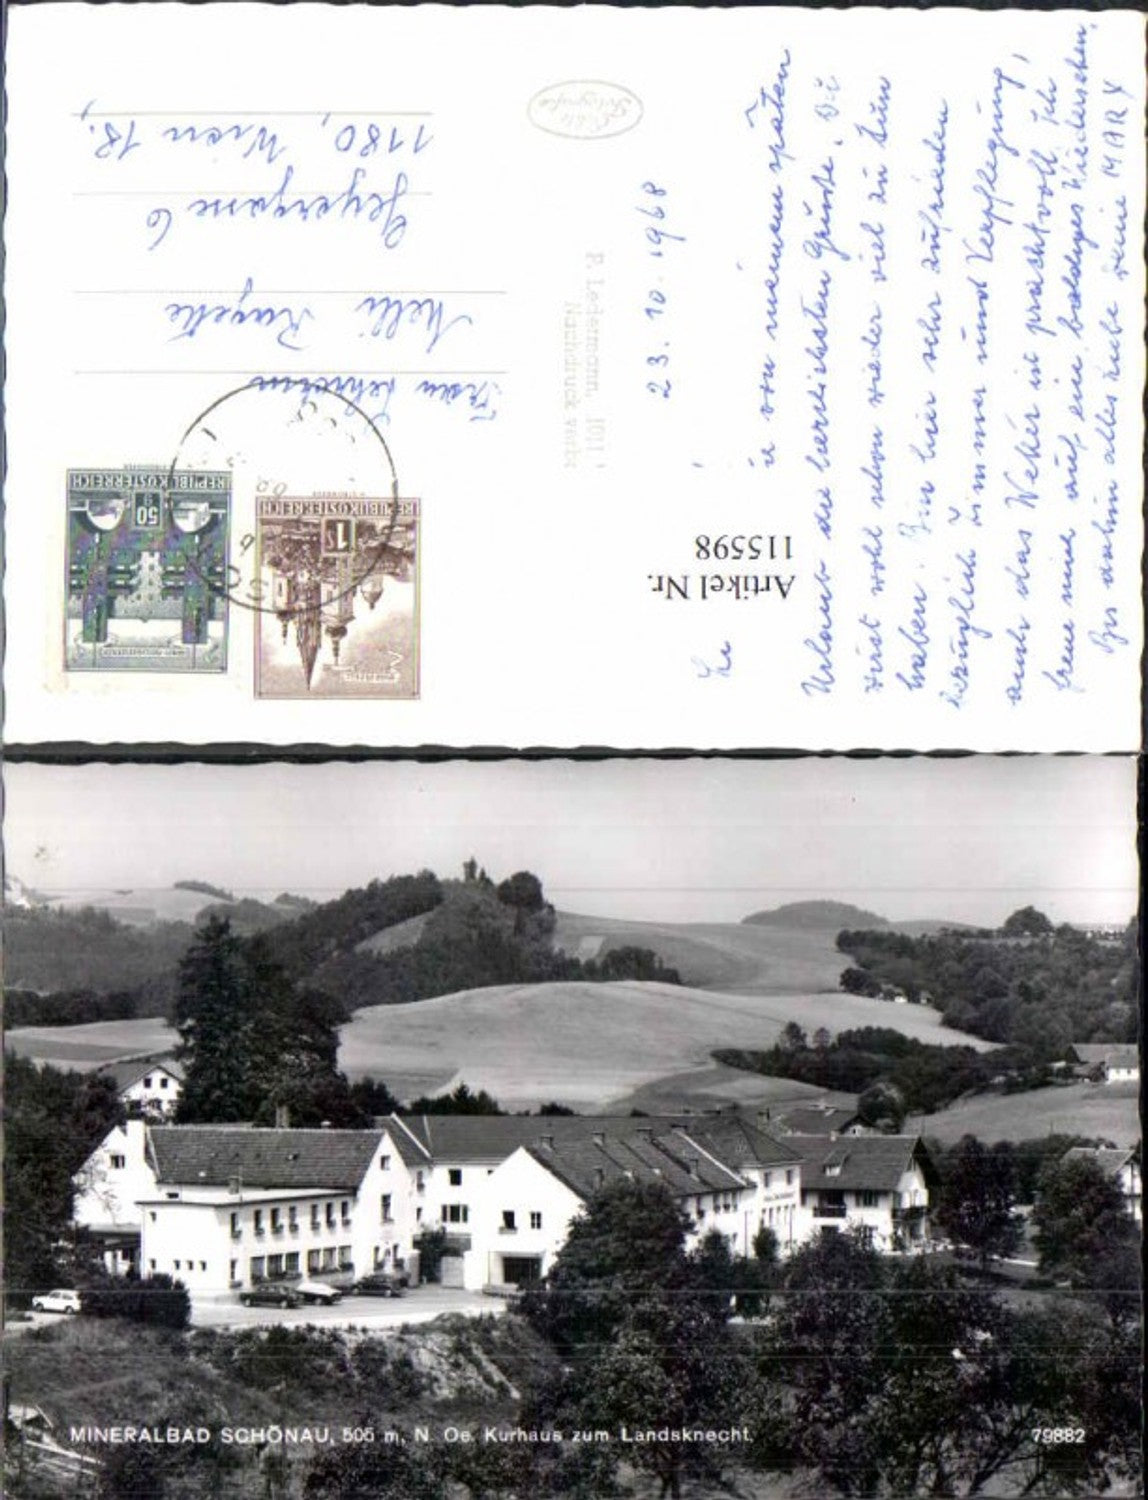 23. 10. 1968
von meinem späten
Urlaub die herzlichsten Grüsse. Du
wirst wohl schon wieder viel zu tun
haben. Bin hier sehr zufrieden
bezüglich Zimmer und Verpflegung,
auch das Wetter ist prachtvoll. Ich
freue mich auf ein baldiges Wiedersehen,
Bis dahin alles Liebe Deine MARY
Artikel Nr.
115598
P. Ledermann, 1011
Nachdruck verb
REPUBLIK ÖSTERREICH
1 S
REPUBLIK ÖSTERREICH
50
Frau Lehrerin
Geyergasse 6
1180, Wien 18.,
MINERALBAD SCHÖNAU, 505 m, N. Oe. Kurhaus zum Landsknecht.
79882